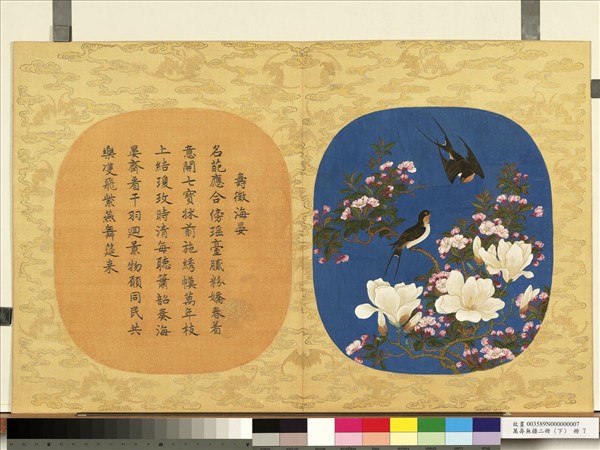 壽徵海晏
名葩應合傍瑤臺膩粉嬌春着
意開七寶牀前施綉幙萬年枝
上結瓊玫時清每聽簫韶奏海
晏齊看干羽迴景物願同民共
樂雙飛紫燕舞筵来
故畫 003589N000000007
萬壽無疆二冊（下） 冊 7